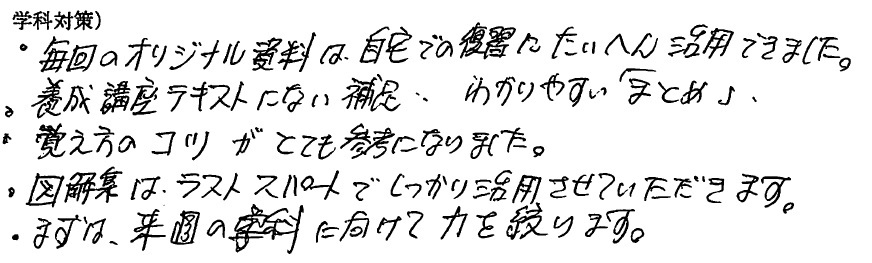 学科対策)
・毎回のオリジナル資料は、自宅での復習にたいへん活用できました。
・養成講座テキストにない補足、わかりやすい「まとめ」、
・覚え方のコツがとても参考になりました。
・図解集は、ラストスパートでしっかり活用させていただきます。
・まずは、来週の学科に向けて力を絞ります。